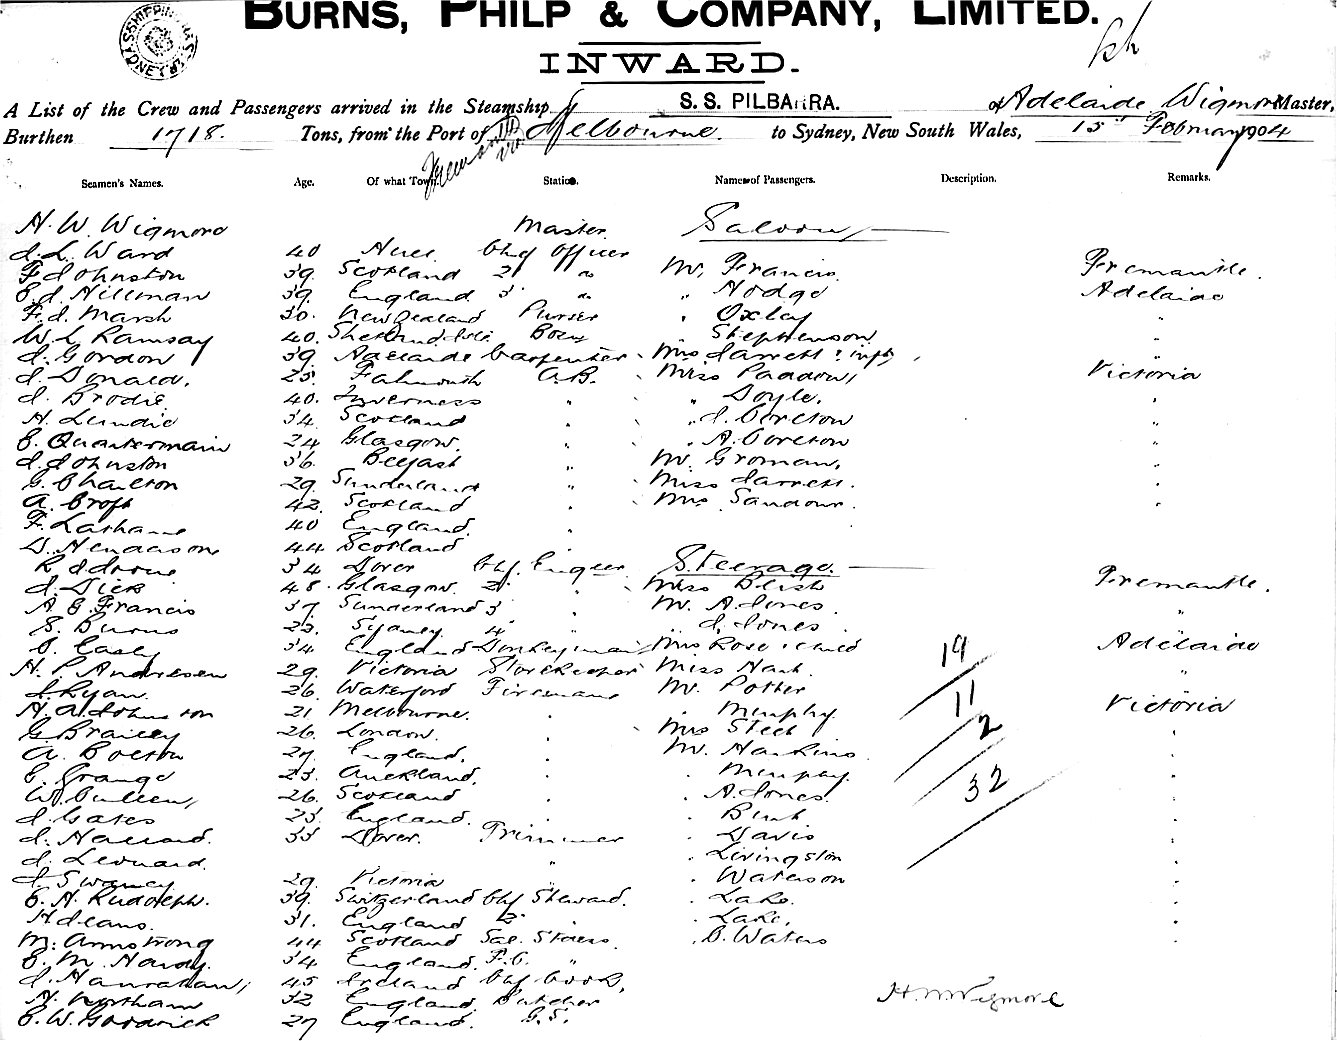 BURNS, PHILP & COMPANY, LIMITED.
INWARD.
A List of the Crew and Passengers arrived in the Steamship S. S. PILBARRA. of Adelaide Wigmore Master,
Burthen 1718. Tons, from the Port of Melbourne. to Sydney, New South Wales, 15 February 1904
Seamen's Names. Age. Of what Town. Station. Names of Passengers. Description. Remarks.
H. W. Wigmore Master Saloon
J. L. Ward 40 Chf Officer
F Johnston 39. Scotland 2 " Mr. Francis Fremantle.
E. J. Hillman 39. England 3 " " Hodge Adelaide
F. J. Marsh 30. New Zealand Purser " Oxley "
W. L Ramsay 40. Shetland Isle Bosn Stephenson "
J. Gordon 39. Adelaide Carpenter Mrs Jarrett & inft "
J. Donald. 25. Falmouth A.B. Miss Paddow Victoria
J. Brodie 40. Inverness " " Doyle. "
H. Lundie 34. Scotland " " J. Coreton "
E. Quartermain 24 Glasgow. " " A. Coreton "
J. Johnston 36. Belfast " Mr. Groman, "
G. Charlton 29. Sunderland " Miss Jarrett. "
A. Croft 42. Scotland " Mrs Sandour. "
F. Latham 40 England. "
D. Henderson 44 Scotland "
34 Dover Chf. Engeer Steerage.
J. Dick 48. Glasgow. 2 " Miss Blish Fremantle.
A. E. Francis 37 Sunderland 3 " Mr. A. Jones "
S. Burns 23. Sydney 4 " " J. Jones "
C. Casey 34 England Donkeyman Mrs Rose & child Adelaide
H. P. Andresen 29. Victoria Storekeeper Miss Nash. "
J. Ryan. 26. Waterford Firemans Mr. Potter Victoria
H. A. Johnston 21 Melbourne. " " Murphy "
G. Brailey 26. London. " Mrs Steel "
A. Bolton 27 England. " Mr. Hawkins "
E. Grange 23. Auckland. " " Murphy "
W. Cullen, 26. Scotland " " A. Jones. "
J. Gates 23. England. " " "
J. Harrard. 33 Dover. Trimmer " Davis "
J. Leonard. " " Livingston "
J. Swaney 29. Victoria " Waterson "
E. A. Rudolph. 39. Switzerland Chf Steward. " Lake. "
H Jeans. 31. England 2 " " Lake. "
M. Armstrong 44 Scotland Sal. Stwess. " B. Waters "
E. M. Hardy. 34 England. F.C. "
J. Hanrahan, 45 Ireland Chf Cook,
H. Northam 32 England Butcher
E. W. Goodrick 27 England. G.S.
19
11
2
32
H. W. Wigmore